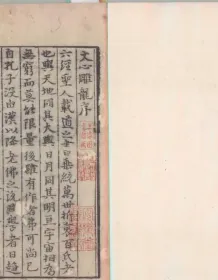 文心雕龍序
六經聖人載道之書垂統萬世折衷百氏者
也與天地同其大日月同其明亘宇宙相為
無窮而莫能限量後雖有作者弗可尚已
自孔子沒由漢以降老佛之說興學者日趨